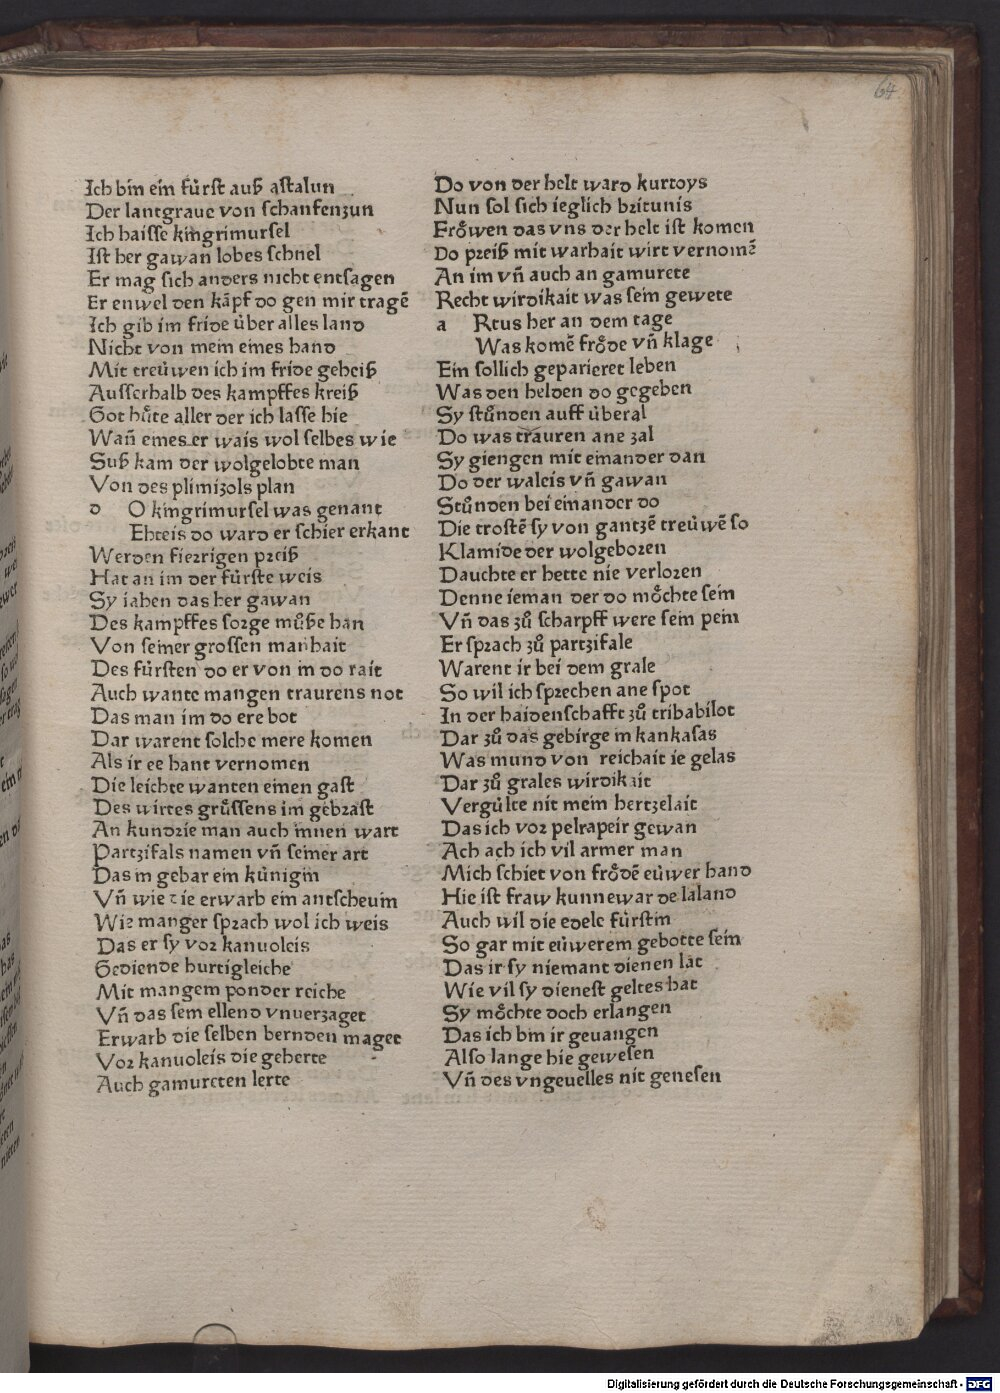 64
Ich bin ein fu̍rſt auß aſtalun
Der lantgraue von ſchanfenzun
Ich haiſſe kingrimurſel
Iſt her gawan lobes ſchnel
Er mag ſich anders nicht entſagen
Er enwel den kāpf do gen mir tragē
Ich gib im fride u̍ber alles land
Nicht von mein eines hand
Mit treu̍wen ich im fride geheiß
Auſſerhalb des kampffes kreiß
Got hu̍te aller der ich laſſe hie
Wan̄ eines er wais wol ſelbes wie
Suß kam der wolgelobte man
Von des plimizols plan
d O kingrimurſel was genant
Ehteis do ward er ſchier erkant
Werden fierrigen preiß
Hat an im der fu̍rſte weis
Sy iahen das her gawan
Des kampffes ſorge mu̍ße han
Von ſeiner groſſen manhait
Des fu̍rſten do er von in do rait
Auch wante mangen traurens not
Das man im do ere bot
Dar warent ſolche mere komen
Als ir ee hant vernomen
Die leichte wanten einen gaſt
Des wirtes gru̍ſſens im gebraſt
An kundrie man auch innen wart
Partzifals namen vn̄ ſeiner art
Das in gebar ein ku̍nigin
Vn̄ wie die erwarb ein antſcheuin
Wie manger ſprach wol ich weis
Das er ſy vor kanuoleis
Gediende hurtigleiche
Mit mangem ponder reiche
Vn̄ das ſein ellend vnuerzaget
Erwarb die ſelben bernden maget
Vor kanuoleis die geherte
Auch gamureten lerte
Do von der helt ward kurtoys
Nun ſol ſich ieglich britunis
Fro̍wen das vns der helt iſt komen
Do preiß mit warhait wirt vernomē
An im vn̄ auch an gamurete
Recht wirdikait was ſein gewete
a Rtus her an dem tage
Was komē fro̍de vn̄ klage
Ein ſollich geparieret leben
Was den helden do gegeben
Sy ſtu̍nden auff u̍beral
Do was trauren ane zal
Sy giengen mit einander dan
Do der waleis vn̄ gawan
Stu̍nden bei einander do
Die troſtē ſy von gantzē treu̍wē ſo
Klamide der wolgeboren
Dauchte er hette nie verloren
Denne ieman der do mo̍chte ſein
Vn̄ das zů ſcharpff were ſein pein
Er ſprach zů partzifale
Warent ir bei dem grale
So wil ich ſprechen ane ſpot
In der haidenſchafft zů tribabilot
Dar zů das gebirge in kankaſas
Was mund von reichait ie gelas
Dar zů grales wirdikait
Vergu̍lte nit mein hertzelait
Das ich vor pelrapeir gewan
Ach ach ich vil armer man
Mich ſchiet von fro̍dē eu̍wer hand
Hie iſt fraw kunnewar de laland
Auch wil die edele fu̍rſtin
So gar mit eu̍werem gebotte ſein
Das ir ſy niemant dienen lat
Wie vil ſy dieneſt geltes hat
Sy mo̍chte doch erlangen
Das ich bin ir geuangen
Alſo lange hie geweſen
Vn̄ des vngeuelles nit geneſen
Digitalisierung gefördert durch die Deutsche Forschungsgemeinschaft - DFG